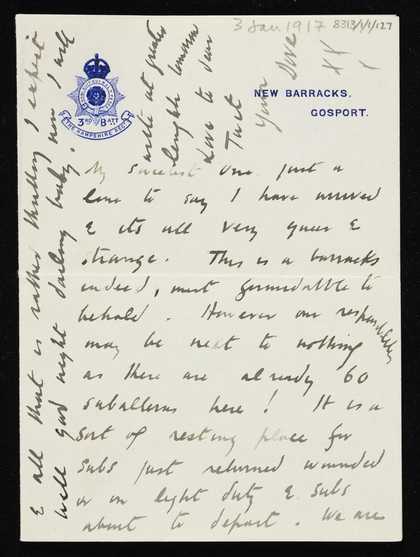 3 Jan 1917
8313/1/1/127
3RD BATT
THE HAMPSHIRE REGT
NEW BARRACKS,
GOSPORT.
My sweetest one just a
line to say I have arrived
& its all very queer &
strange. This is a barracks
indeed, most formidable to
behold. However our responsibilities
may be next to nothing
as there are already 60
subalterns here! It is a
sort of resting place for
subs just returned wounded
or on light duty & subs
about to depart. We are
& all that is rather thrilling I expect
well good night darling baby now I will
write at greater
length tomorrow
Love to dear
Your Dove
XX